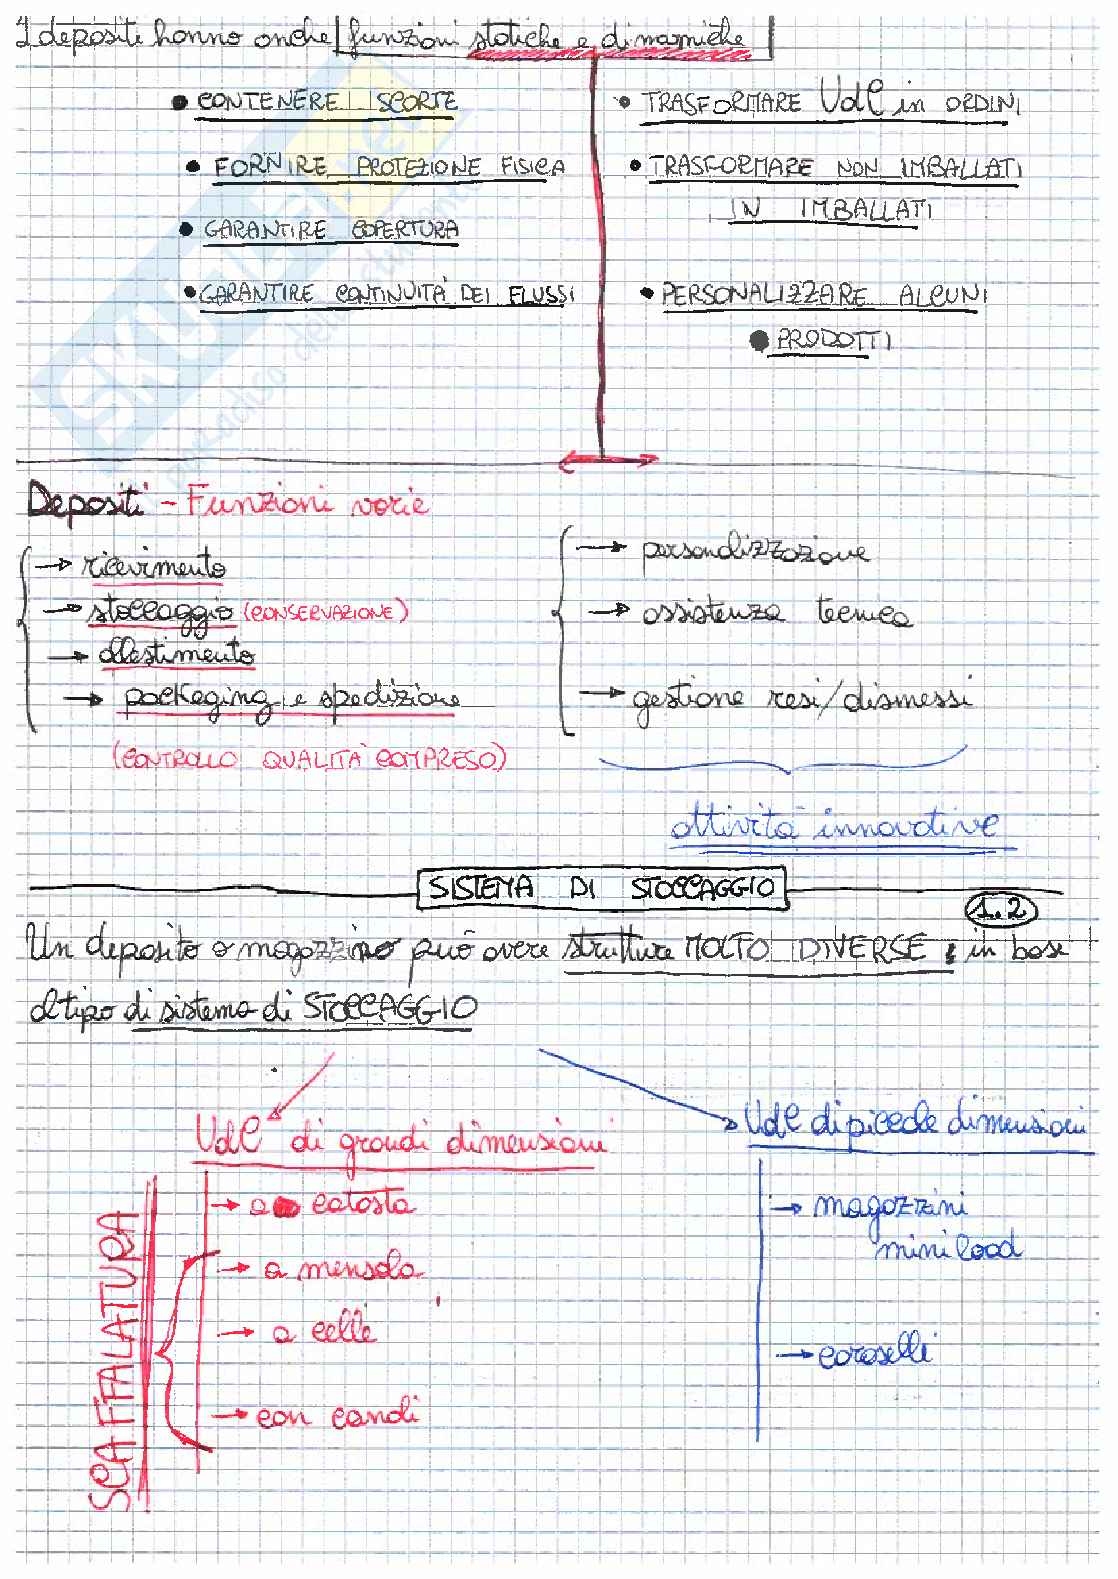 I depositi hanno anche funzioni statiche e dinamiche
• CONTENERE SCORTE
• FORNIRE PROTEZIONE FISICA
• GARANTIRE COPERTURA
• GARANTIRE CONTINUITÀ DEI FLUSSI
• TRASFORMARE UdC in ORDINI
• TRASFORMARE NON IMBALLATI
IN IMBALLATI
• PERSONALIZZARE ALCUNI
PRODOTTI
Depositi - Funzioni varie
→ ricevimento
→ stoccaggio (CONSERVAZIONE)
→ allestimento
→ packaging e spedizione
(CONTROLLO QUALITÀ COMPRESO)
→ personalizzazione
→ assistenza tecnica
→ gestione resi/dismessi
attività innovative
SISTEMA DI STOCCAGGIO
1.2
Un deposito o magazzino può avere strutture MOLTO DIVERSE in base
al tipo di sistema di STOCCAGGIO
UdC di grandi dimensioni
→ a catasta
→ a mensola
→ a celle
→ con canali
SCAFFALATURA
UdC di piccole dimensioni
→ magazzini
miniload
→ caroselli
SKUOLA.net